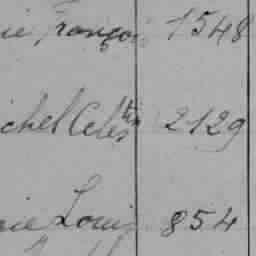 ie François 1548
ichel Celestin 2129
rie Louis 854